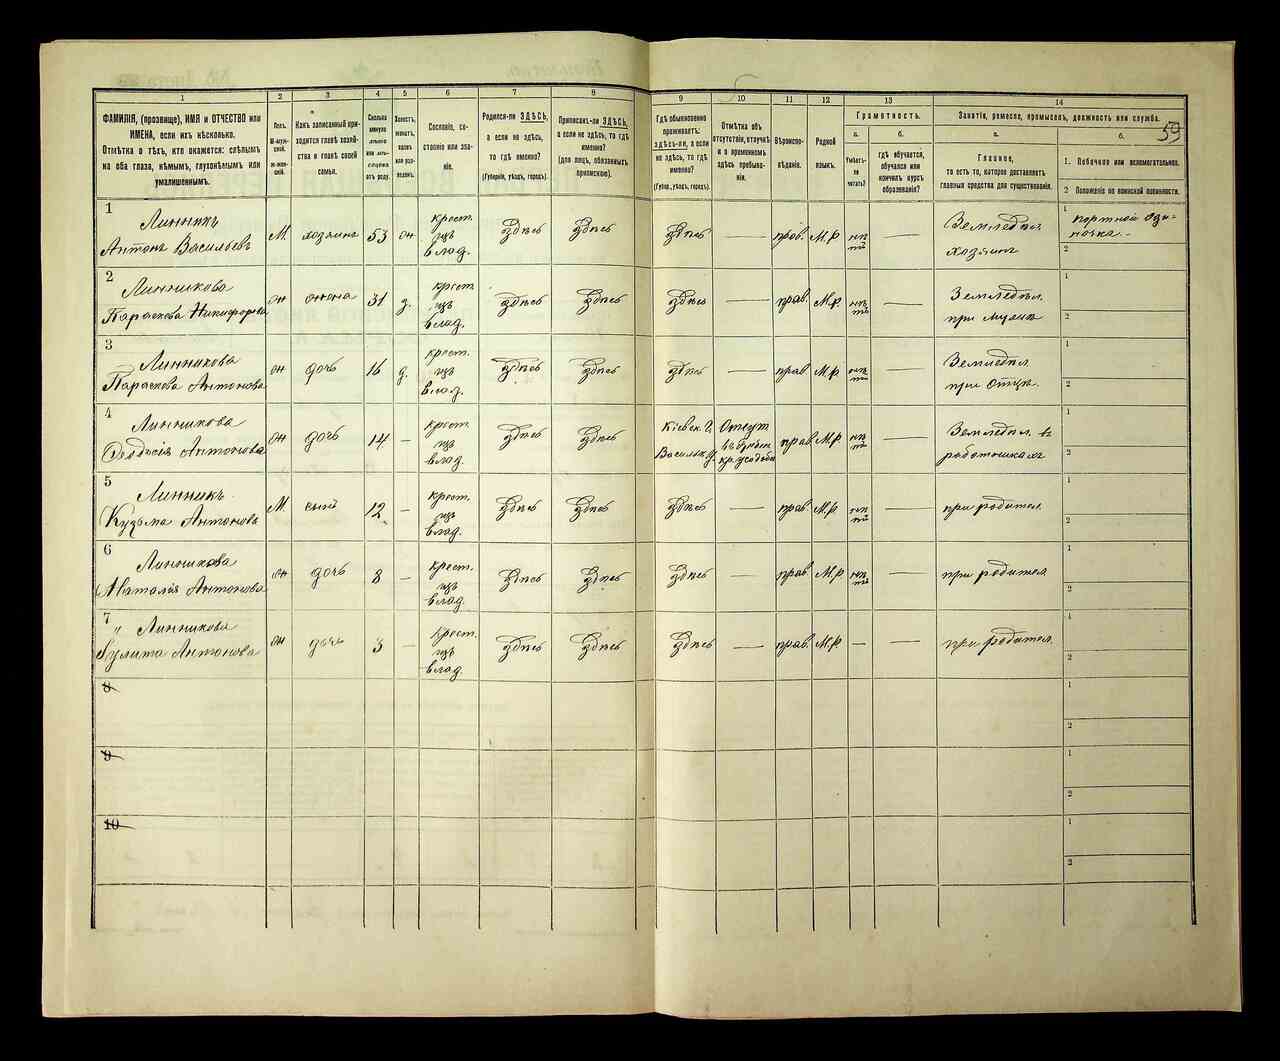 1
2
3
4
5
6
7
8
9
10
11
12
13
14
59
ФАМИЛІЯ, (прозвище), ИМЯ и ОТЧЕСТВО или
ИМЕНА, если ихъ нѣсколько.
Отмѣтка о тѣхъ, кто окажется: слѣпымъ
на оба глаза, нѣмымъ, глухонѣмымъ или
умалишеннымъ.
Полъ.
М-муж-
ской.
Ж-жен-
скій.
Какъ записанный при-
ходится главѣ хозяй-
ства и главѣ своей
семьи.
Сколько
минуло
лѣтъ
или мѣся-
цевъ
отъ роду.
Холостъ,
женатъ,
вдовъ
или разве-
денъ.
Сословіе, со-
стояніе или зва-
ніе.
Родился-ли ЗДѢСЬ,
а если не здѣсь,
то гдѣ именно?
(Губернія, уѣздъ, городъ).
Приписанъ-ли ЗДѢСЬ,
а если не здѣсь, то гдѣ
именно?
(для лицъ, обязанныхъ
припискою).
Гдѣ обыкновенно
проживаетъ:
здѣсь-ли, а если
не здѣсь, то гдѣ
именно?
(Губер., уѣздъ, городъ).
Отмѣтка объ
отсутствіи, отлучкѣ
и о временномъ
здѣсь пребыва-
ніи.
Вѣроиспо-
вѣданіе.
Родной
языкъ.
Грамотность.
а.
Умѣетъ-
ли
читать?
б.
гдѣ обучается,
обучался или
кончилъ курсъ
образованія?
Занятіе, ремесло, промыселъ, должность или служба.
а.
Главное,
то есть то, которое доставляетъ
главныя средства для существованія.
б.
1. Побочное или вспомогательное.
2 Положеніе по воинской повинности.
1
Линникъ
Антонъ Васильевъ
М.
хозяинъ
53
он
крест.
изъ
влад.
здѣсь
здѣсь
здѣсь
—
прав.
М.Р.
нѣтъ
—
Земледѣл.
хозяинъ
1
портной оди-
ночка.
2
2
Линникова
Параскова Никифорова
он
онъ жена
31
з.
крест
изъ
влад.
здѣсь
здѣсь
здѣсь
—
прав.
М.Р.
нѣтъ
—
Земледѣл.
при мужѣ
1
2
3
Линникова
Параскова Антонова
он
дочь
16
д.
крест.
изъ
влад.
здѣсь
здѣсь
здѣсь
—
прав
М.Р.
нѣтъ
—
Земледѣл
при отцѣ.
1
2
4
Линникова
Ѳеодосія Антонова
он
дочь
14
—
крест.
изъ
влад.
здѣсь
здѣсь
Кіевск. г.
Васильк. у.
Отсут
прав
М.Р
нѣтъ
—
Земледѣл. въ
1
2
5
Линникъ
Кузьма Антоновъ
М.
сынъ
12
—
крест.
изъ
влад.
здѣсь
здѣсь
здѣсь
—
прав.
М.Р.
нѣтъ
—
при родител.
1
2
6
Линникова
Наталія Антонова
он
дочь
8
—
крест.
изъ
влад.
здѣсь
здѣсь
здѣсь
—
прав.
М.Р
нѣтъ
—
при родител
1
2
7
Линникова
Гулита Антонова
он
дочь
3
—
крест.
изъ
влад.
здѣсь
здѣсь
здѣсь
—
прав.
М.Р.
—
—
при родител.
1
2
8
1
2
9
1
2
10
1
2